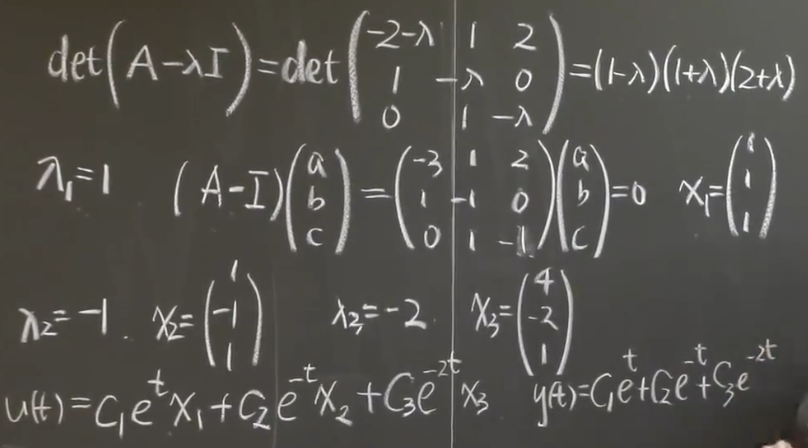 det(A-λI) = det(-2-λ 1 2; 1 -λ 0; 0 1 -λ) = (1-λ)(1+λ)(2+λ)
λ₁=1 (A-I)(a; b; c) = (-3 1 2; 1 -1 0; 0 1 -1)(a; b; c) = 0 x₁=(1; 1; 1)
λ₂=-1. x₂=(1; -1; 1) λ₂=-2. x₃=(4; -2; 1)
u(t)=C₁eᵗx₁+C₂e⁻ᵗx₂+C₃e⁻²ᵗx₃ y(t)=C₁eᵗ+C₂e⁻ᵗ+C₃e⁻²ᵗ